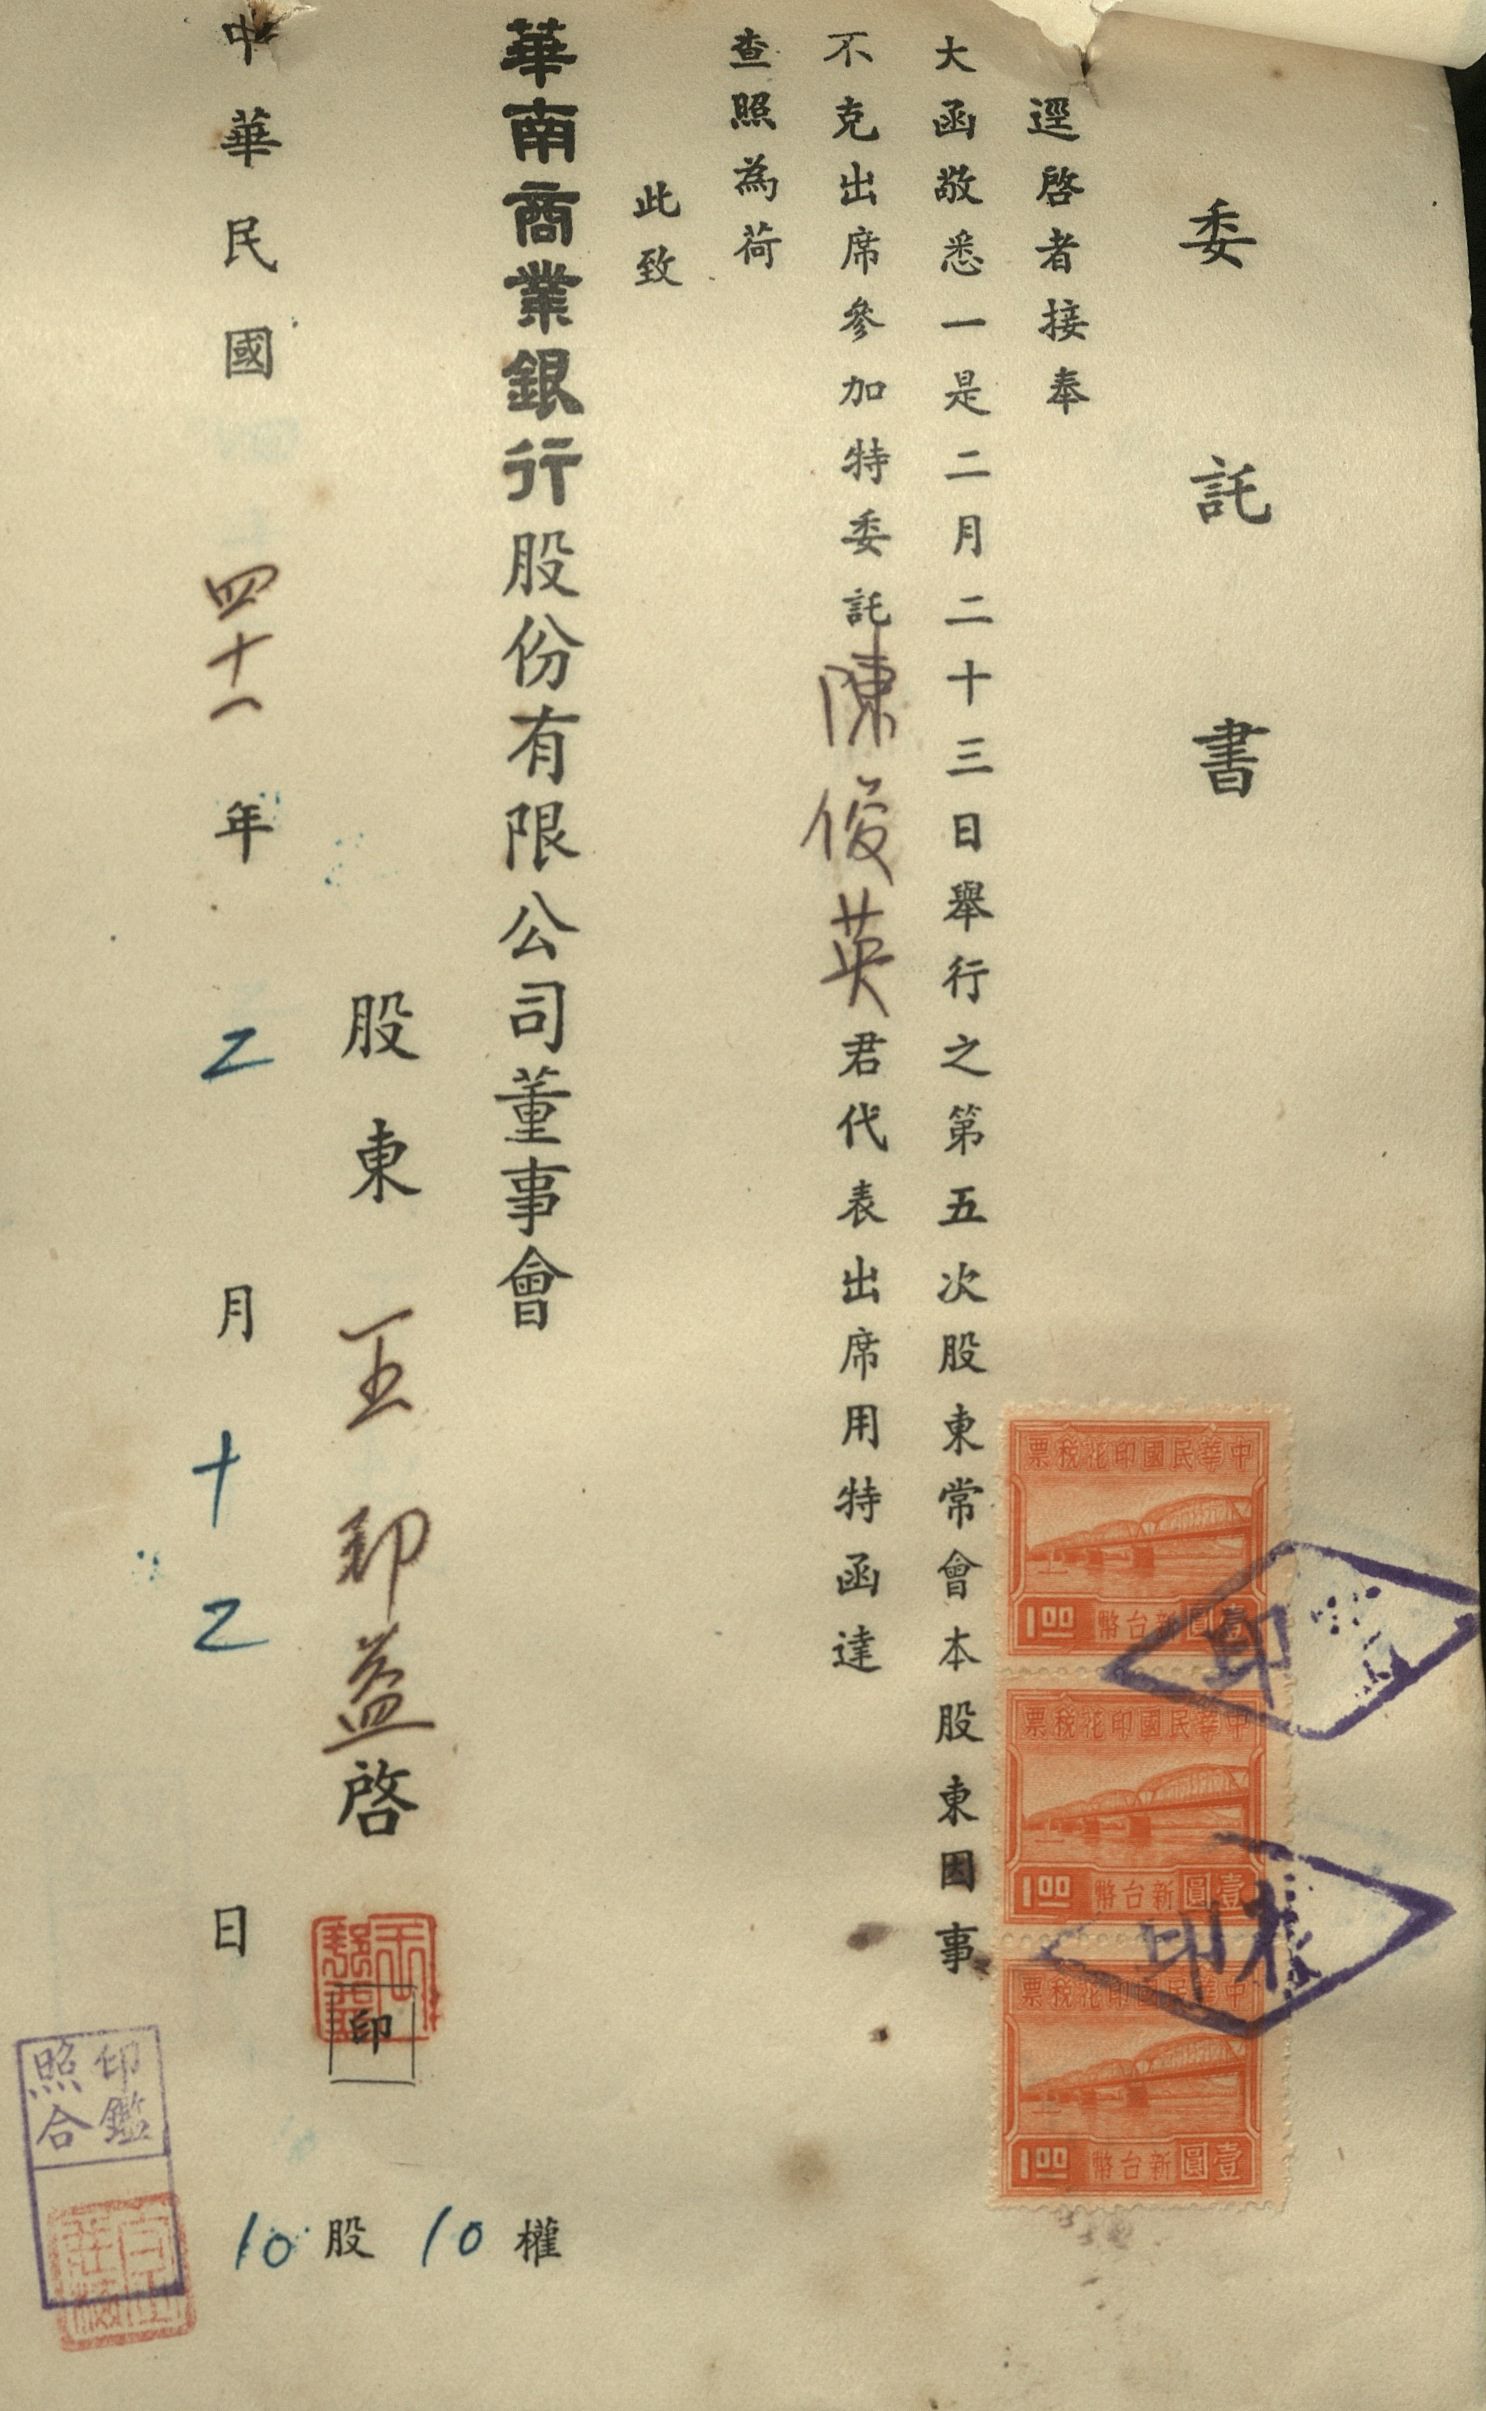 委託書
逕啓者接奉
大函敬悉一是二月二十三日舉行之第五次股東常會本股東因事
不克出席參加特委託陳俊英君代表出席用特函達
查照為荷
此致
華南商業銀行股份有限公司董事會
股東王郵益啓
印
中華民國四十一年乙月十乙日
10股10權
印鑑
照合
票稅花印國民華中
1.00 幣台新圓壹
票稅花印國民華中
1.00 幣台新圓壹
票稅花印國民華中
1.00 幣台新圓壹
印
印